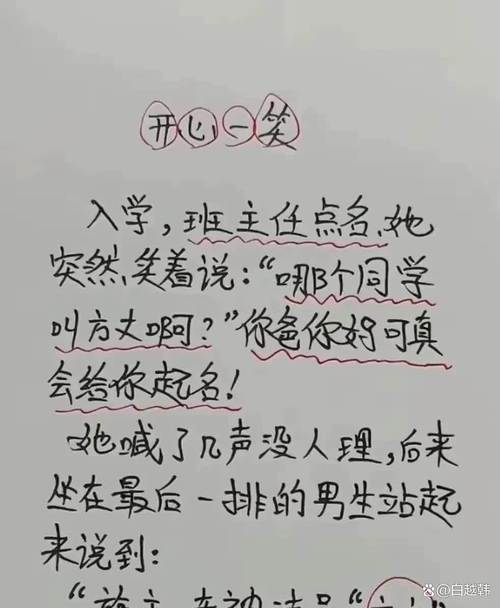 开心一笑
入学，班主任点名，她
突然笑着说：“哪个同学
叫方丈啊？”你爸你妈可真
会给你起名！
她喊了几声没人理，后来
坐在最后一排的男生站起
来说到：
百家号/白越韩